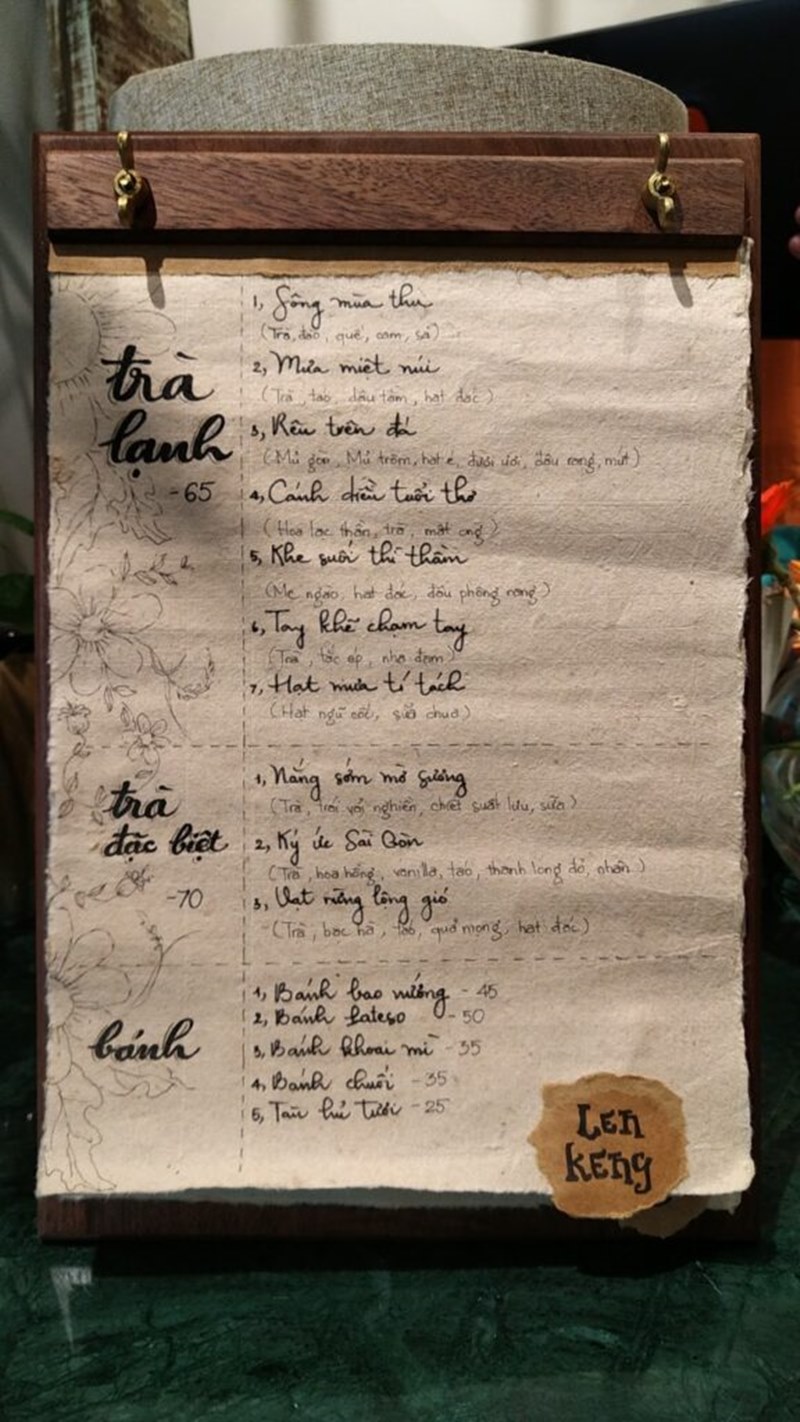 trà
lạnh
-65
1, Sông mùa thu
(Trà, đào, quế, cam, sả)
2, Mưa miệt núi
(Trà, táo, dâu tằm, hạt đác)
3, Rêu trên đá
(Mủ gòn, Mủ trôm, hạt é, đười ươi, đậu rang, mứt)
4, Cánh diều tuổi thơ
(Hoa lạc thần, trà, mật ong)
5, Khe suối thì thầm
(Me ngào, hạt đác, đậu phộng rang)
6, Tay khẽ chạm tay
(Trà, tắc ép, nha đam)
7, Hạt mưa tí tách
(Hạt ngũ cốc, sữa chua)
trà
đặc biệt
-70
1, Nắng sớm mờ sương
(Trà, trái vải nghiền, chiết suất lựu, sữa)
2, Ký ức Sài Gòn
(Trà, hoa hồng, vanilla, táo, thanh long đỏ, nhãn)
3, Vạt rừng lộng gió
(Trà, bạc hà, táo, quả mọng, hạt đác)
bánh
1, Bánh bao nướng - 45
2, Bánh - 50
3, Bánh khoai mì - 35
4, Bánh chuối - 35
5, Tàu hủ tươi - 25
Len
keng